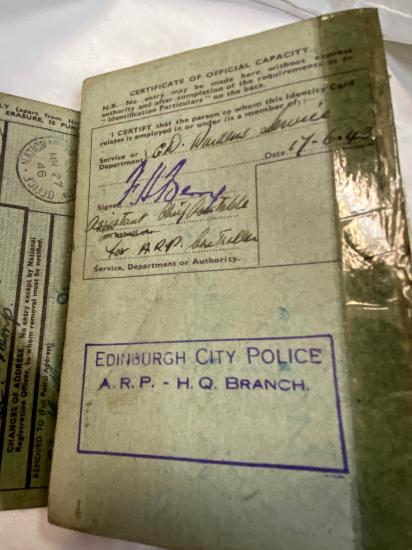 CERTIFICATE OF OFFICIAL CAPACITY.
N.B.—No entry may be made here without express
authority and after completion of the requirements as to
"Identification Particulars" on the back.
I CERTIFY that the person to whom this Identity Card
relates is employed in or under (is a member of):—
Service or C.D. Wardens Service
Department
Date 17-6-43
Signed
Assistant Chief Constable
on behalf of
for A.R.P. Controller
Service, Department or Authority.
EDINBURGH CITY POLICE
A.R.P. - H.Q. BRANCH.
LY (apart from
ERASURE, IS PUN
OFFICE
27
46
CHANGES OF ADDRESS. No entry except by National
Registration Officer, to whom removal must be notified.
REMOVED TO (Full Postal Address)